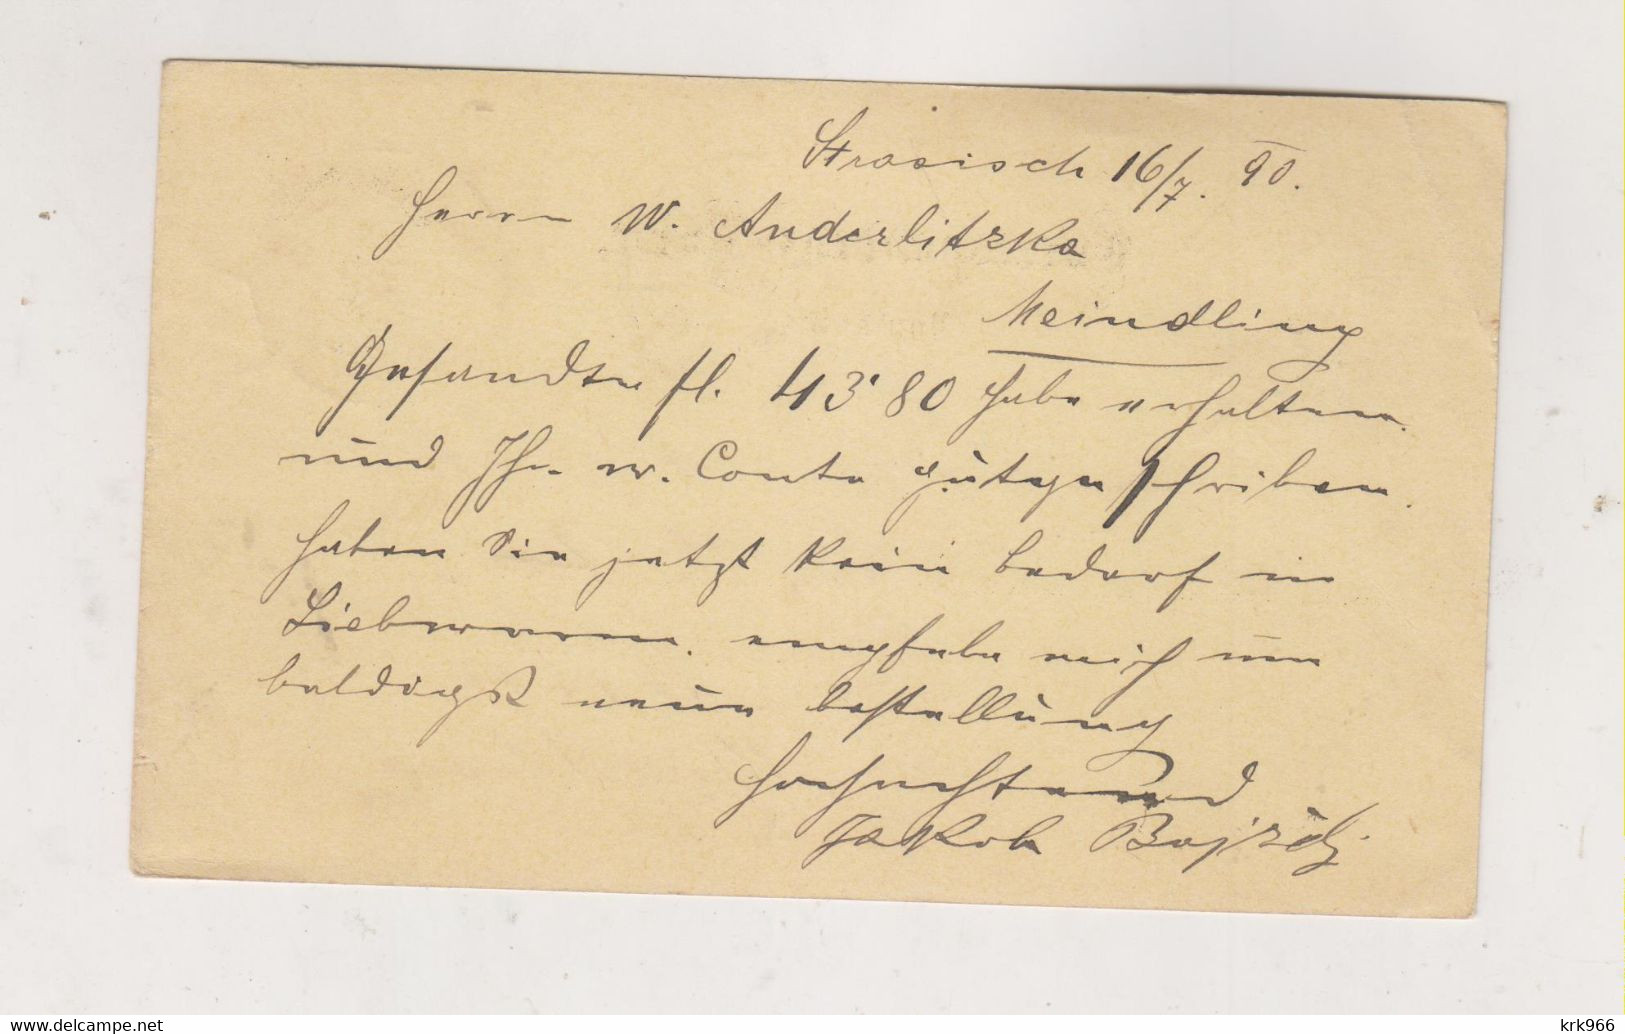 Strasisch 16/7. 90.
Herrn W. Anderlitzka
Meindling
Gesandte fl. 43'80 habe erhalten
und Ihr w. Conto gutgeschriben.
haben Sie jetzt kein bedarf in
Siebwaren. empfele mich um
baldigst neue bestellung
Hochachtend
Jakob
krk966